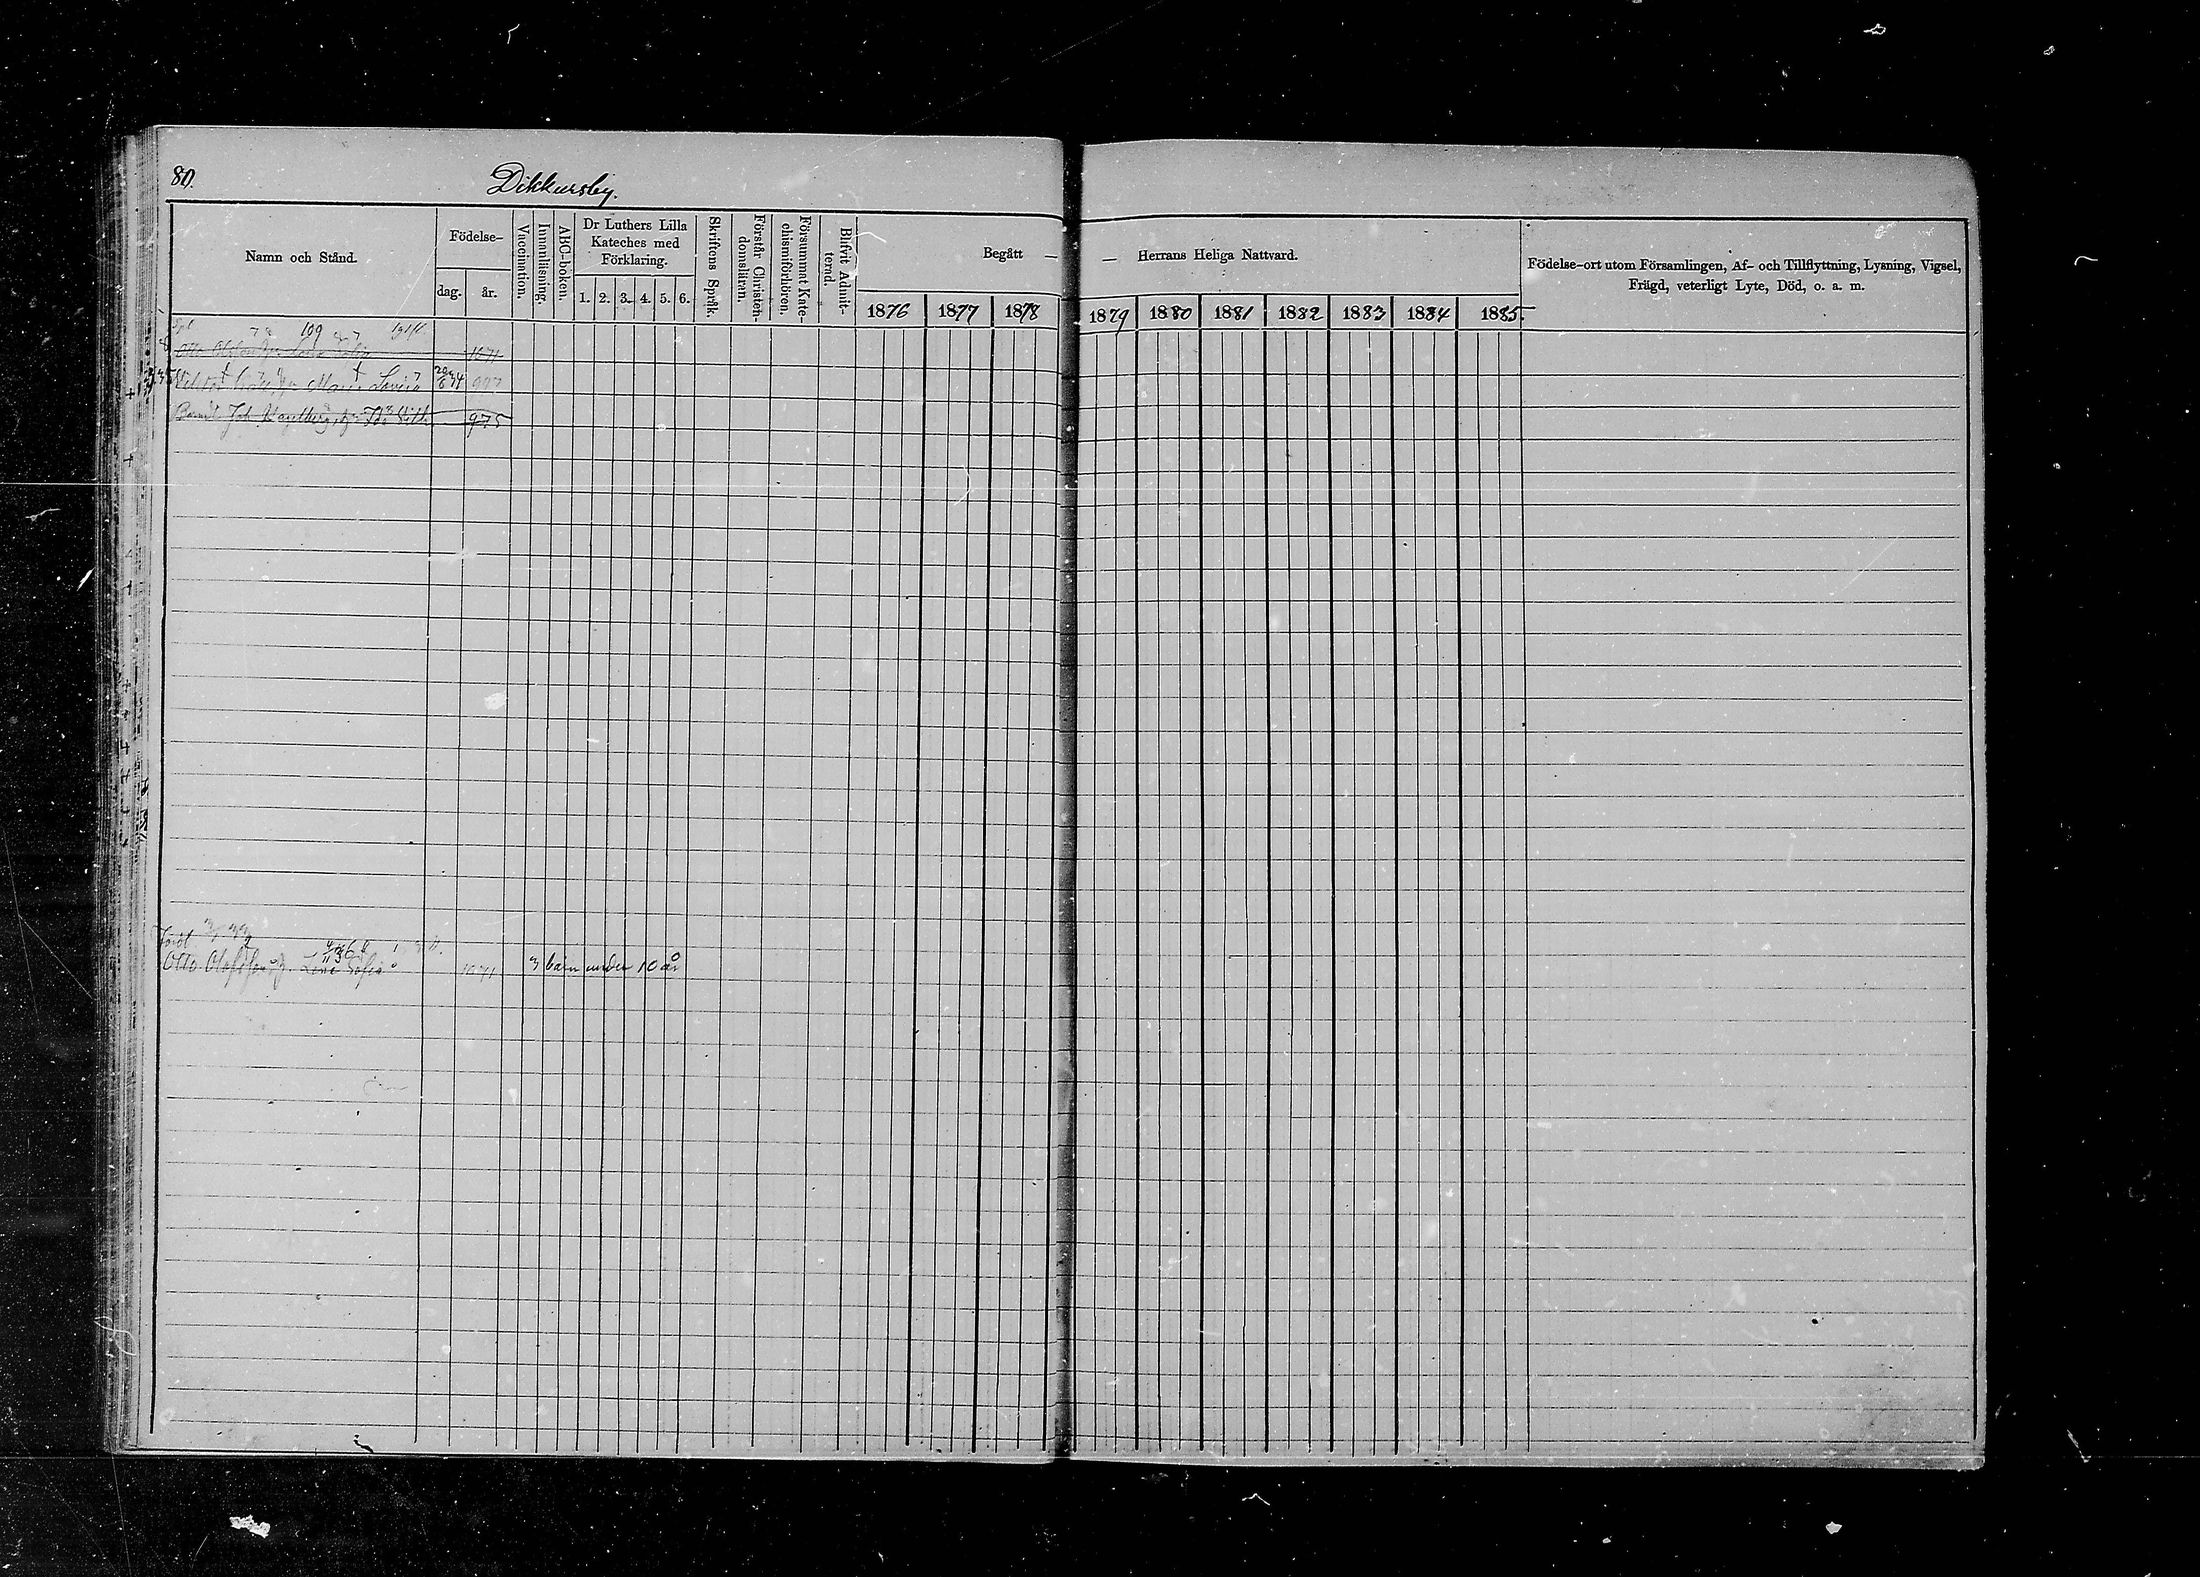 80.
Dikkursby.
Namn och Stånd.
Födelse-
dag.
år.
Vaccination.
Innanläsning.
ABC-boken.
Dr Luthers Lilla
Kateches med
Förklaring.
1. 2. 3. 4. 5. 6.
Skriftens Språk.
Förstår Christen-
domsläran.
Försummat Kate-
chismiförhören.
Blifvit Admit-
terad.
Begått —
— Herrans Heliga Nattvard.
1876 1877 1878 1879 1880 1881 1882 1883 1884 1885.
Födelse-ort utom Församlingen, Af- och Tillflyttning, Lysning, Vigsel,
Frägd, veterligt Lyte, Död, o. a. m.
109
Otto 1071
Maria Lovisa 977
Joh. 975
Otto Lena Sofia 1071 3 barn under 10 år